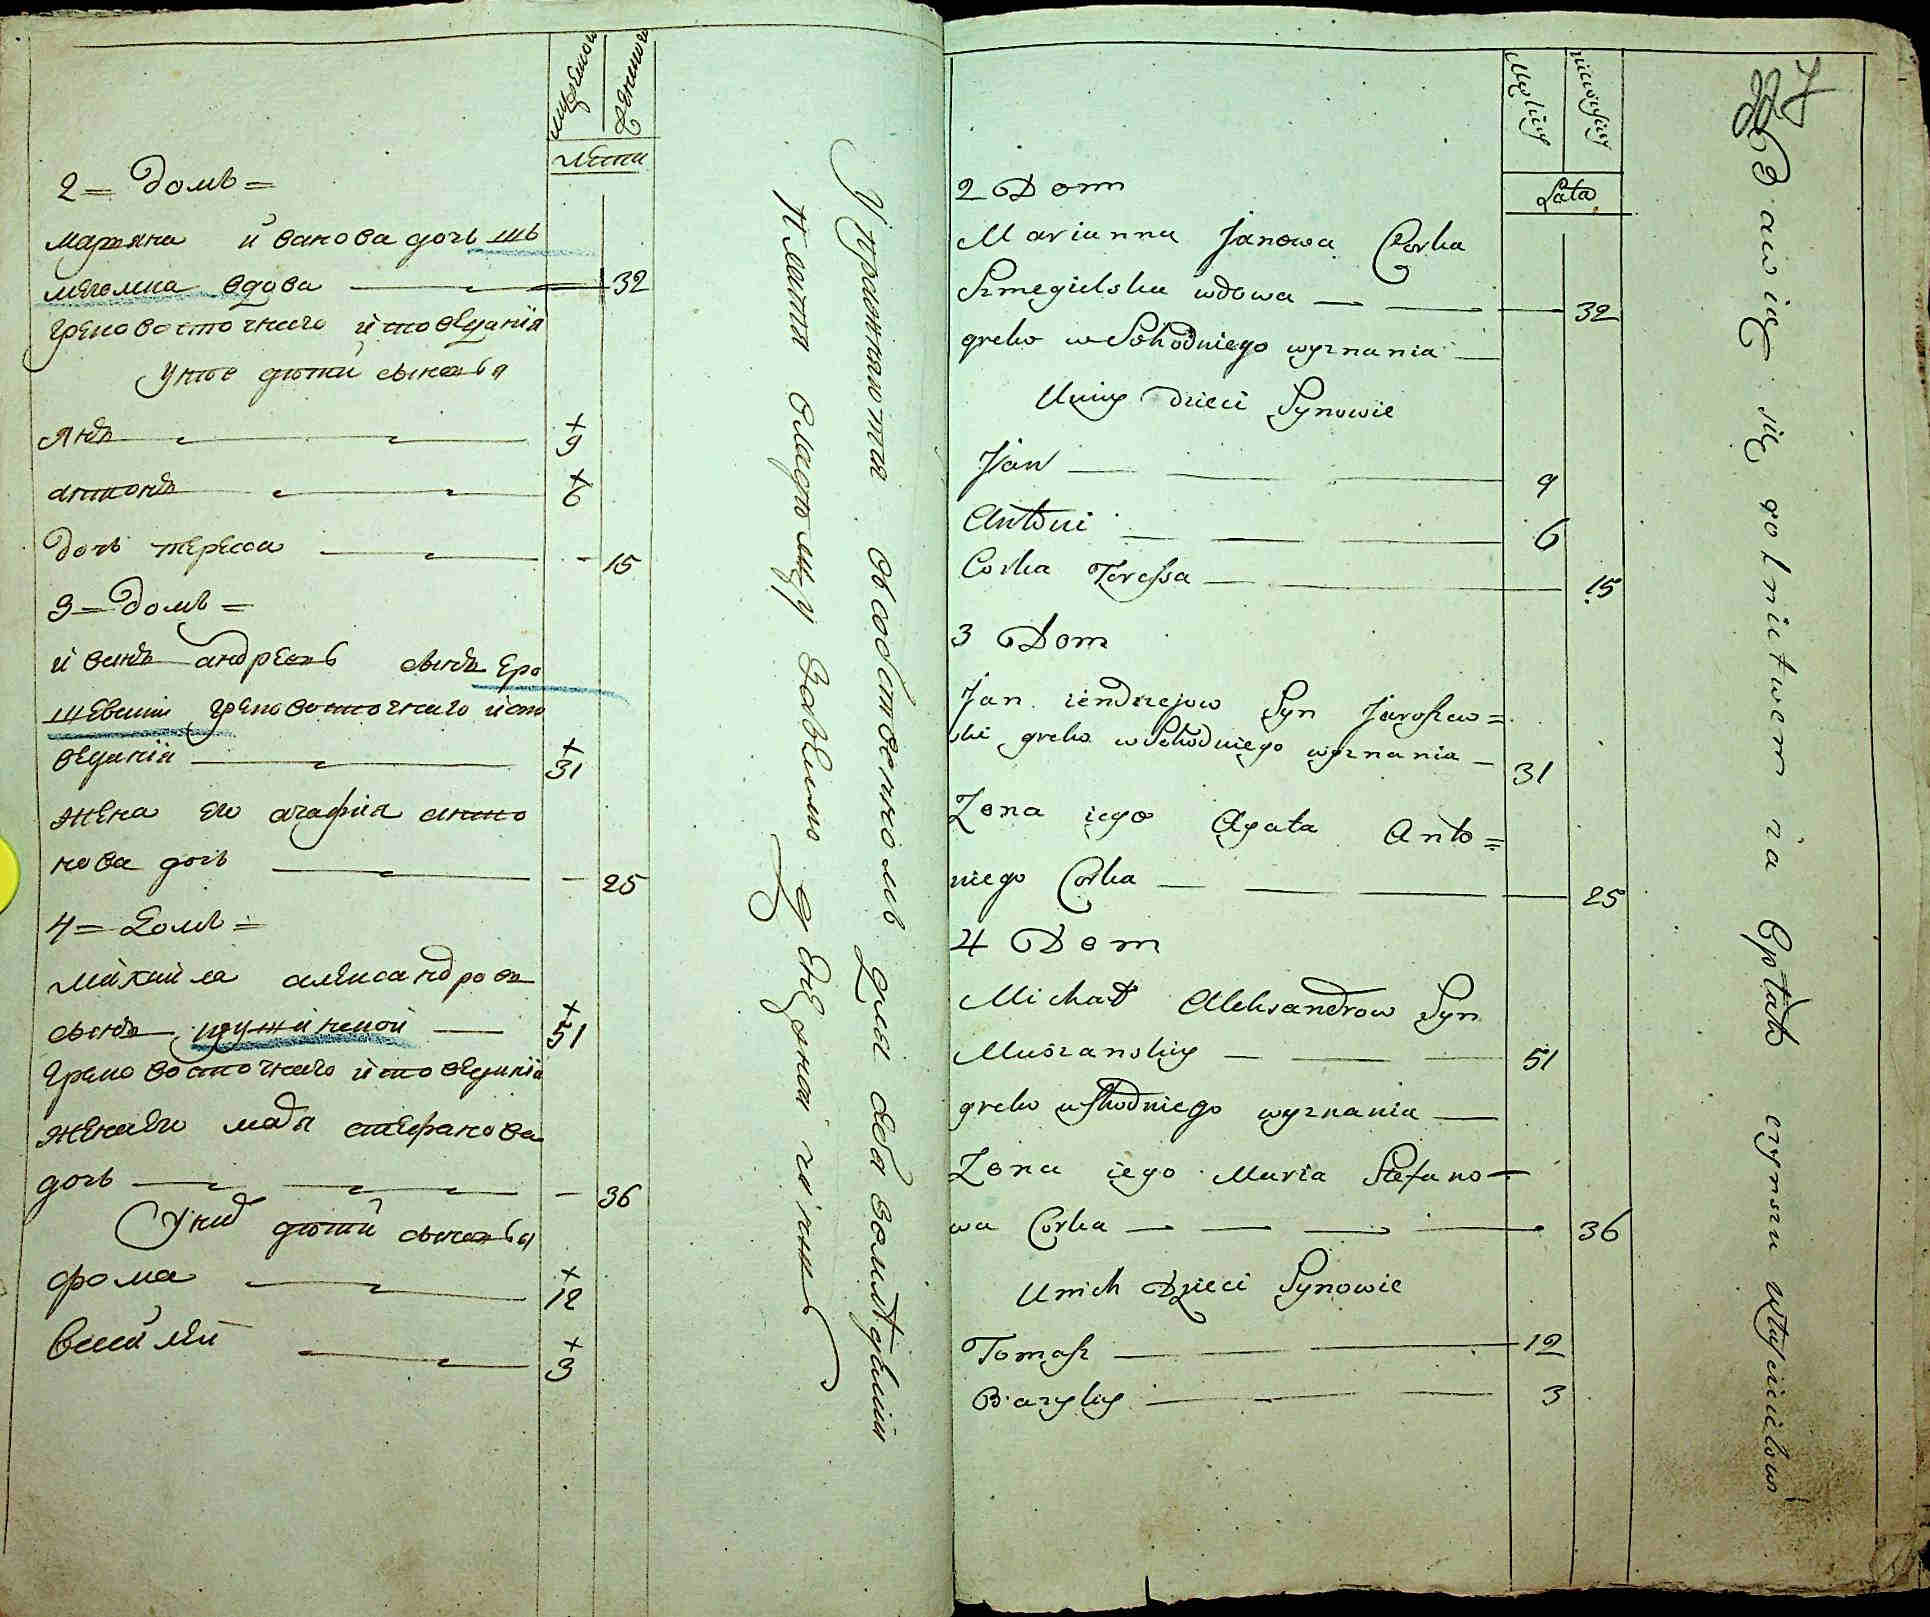 мужеска
женска
лѣта
2 = Домъ =
марьяна ивановa дочь шь
мегелска вдова 32
греко восточнаго исповеданія
у нее дѣти сыновья
янъ 9
антонъ 6
дочь тересса 15
3 = Домъ =
иванъ андреевъ сынъ Еро
шевски греко восточнаго испо
веданія 31
жена его агафия анто
нова дочь 25
4 = Домъ =
михайла александровъ
сынъ
51
греко восточнаго исповеданія
жена его стефанова
дочь 36
У них дѣти сыновья
фома 12
василий 3
Упражняются въ собственномъ для себя земледѣлии
платя владельцу
Męskiey
niewieskiey
Lata
7
2 Dom
Marianna Janowa Corka
Szmegielska wdowa 32
greko wschodniego wyznania
Uniey dzieci Synowie
Jan 9
Antoni 6
Corka Teressa 15
3 Dom
Jan iendrzejow Syn Jaroszew=
ski greko wschodniego wyznania 31
Zona iego Agata Anto=
niego Corka 25
4 Dom
Michał Aleksandrow Syn
Muszanskiy 51
greko wschodniego wyznania
Zona iego Maria Stefano=
wa Corka 36
Unich Dzieci Synowie
Tomasz 12
Bazyliy 3
Bawią się rolnictwem na Opłato czynszu Właścicielowi